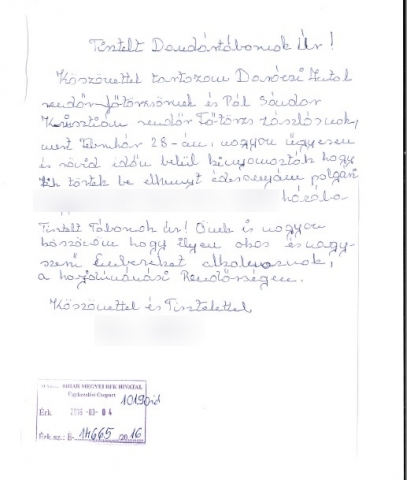 Tisztelt Dandártábornok Úr!
Köszönettel tartozom Daróczi Antal
rendőr főtörzsőrmnek és Pál Sándor
Krisztián rendőr Főtörzs zászlósnak,
mert Február 28-án, nagyon ügyesen
és rövid időn belül kinyomozták hogy
kik törtek be elhunyt édesanyám polgári
házába
Tisztelt Tábornok Úr! Önnek is nagyon
köszönöm hogy ilyen okos és nagy-
szerű Embereket alkalmaznak,
a Rendőrségen.
Köszönettel és Tisztelettel
BIHAR MEGYEI RFK HIVATAL
Ügykezelési Csoport
Érk 2016 -03- 04
Érk.sz.: 14665/2016